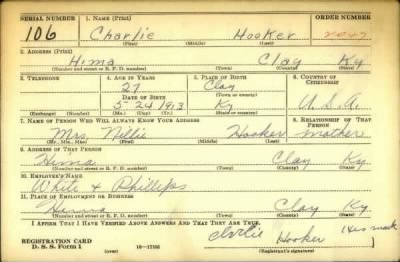 SERIAL NUMBER 1. NAME (Print) ORDER NUMBER
106 Charlie Hooker
(First) (Middle) (Last)
2. ADDRESS (Print)
Hima Clay Ky
(Number and street or R. F. D. number) (Town) (County) (State)
3. TELEPHONE 4. AGE IN YEARS 5. PLACE OF BIRTH 6. COUNTRY OF CITIZENSHIP
27 Clay
DATE OF BIRTH (Town or county)
5-24 1913 Ky U.S.A.
(Exchange) (Number) (Mo.) (Day) (Yr.) (State or country)
7. NAME OF PERSON WHO WILL ALWAYS KNOW YOUR ADDRESS 8. RELATIONSHIP OF THAT PERSON
Mrs. Nellie Hooker mother
(Mr., Mrs., Miss) (First) (Middle) (Last)
9. ADDRESS OF THAT PERSON
Hima Clay Ky.
(Number and street or R. F. D. number) (Town) (County) (State)
10. EMPLOYER'S NAME
White & Phillips
11. PLACE OF EMPLOYMENT OR BUSINESS
Hima Clay Ky
(Number and street or R. F. D. number) (Town) (County) (State)
I AFFIRM THAT I HAVE VERIFIED ABOVE ANSWERS AND THAT THEY ARE TRUE.
REGISTRATION CARD Hooker (His mark
D. S. S. Form 1 (over) (Registrant's signature)